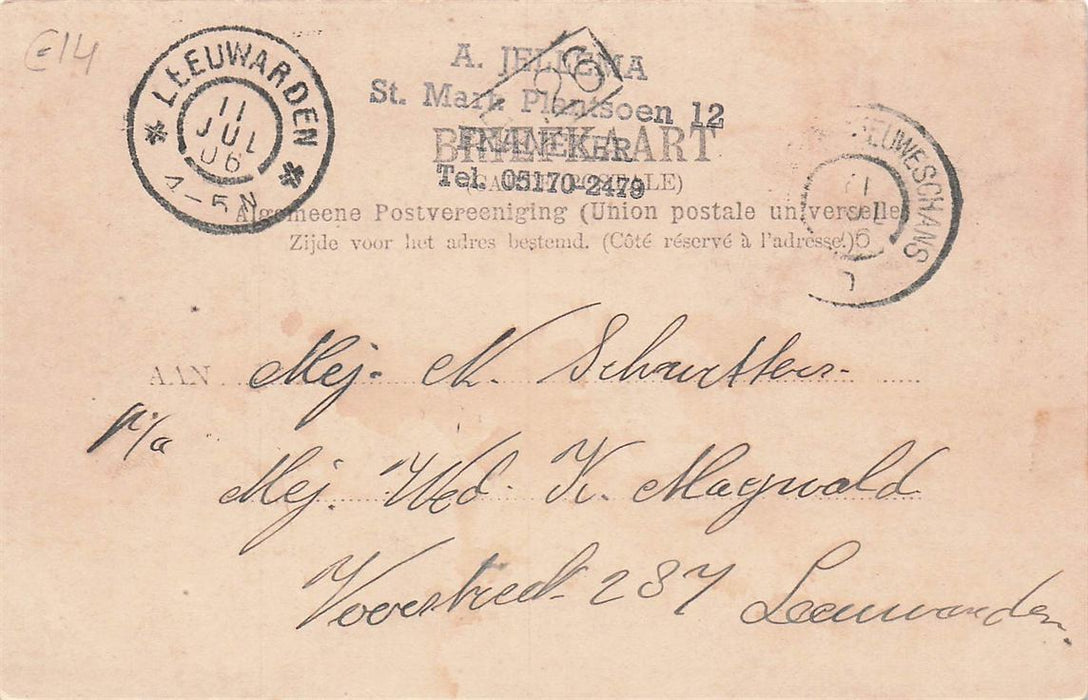 E14
LEEUWARDEN
11
JUL
06
4-5N
A. JELLEMA
St. Mark Plantsoen 12
FRANEKER
Tel. 05170-2479
96
BRIEFKAART
(CARTE POSTALE)
Algemeene Postvereeniging (Union postale universelle)
Zijde voor het adres bestemd. (Côté réservé à l'adresse.)
EUWESCHANS
11
6
AAN Mej. M. Schurtter
p/a
Mej. Wed. K. Maywald
Voorstreek 287 Leeuwarden.